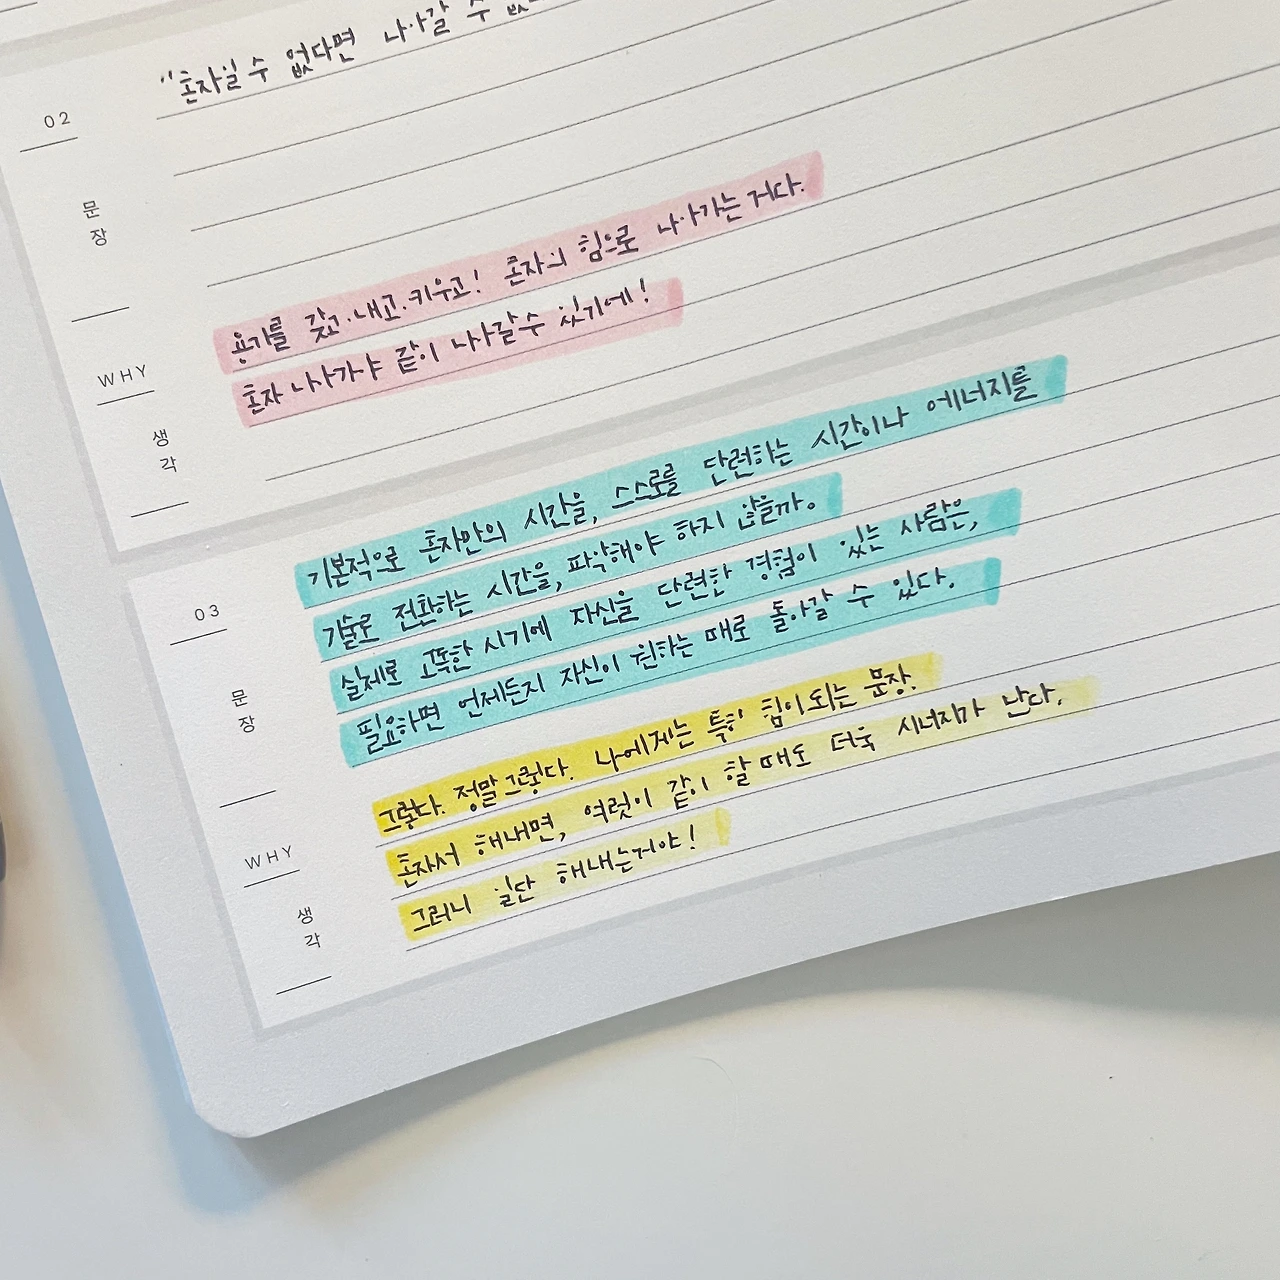 "혼자일 수 없다면 나아갈 수 없
02
문
장
용기를 갖고·내고·키우고! 혼자의 힘으로 나아가는 거다.
혼자 나아가야 같이 나아갈 수 있기에!
WHY
생
각
기본적으로 혼자만의 시간을, 스스로를 단련하는 시간이나 에너지를
기술로 전환하는 시간을, 파악해야 하지 않을까.
03
실제로 고독한 시기에 자신을 단련한 경험이 있는 사람은,
필요하면 언제든지 자신이 원하는 때로 돌아갈 수 있다.
문
장
그렇다. 정말 그렇다. 나에게는 특히 힘이 되는 문장.
혼자서 해내면, 여럿이 같이 할 때도 더욱 시너지가 난다.
그러니 일단 해내는거야!
WHY
생
각